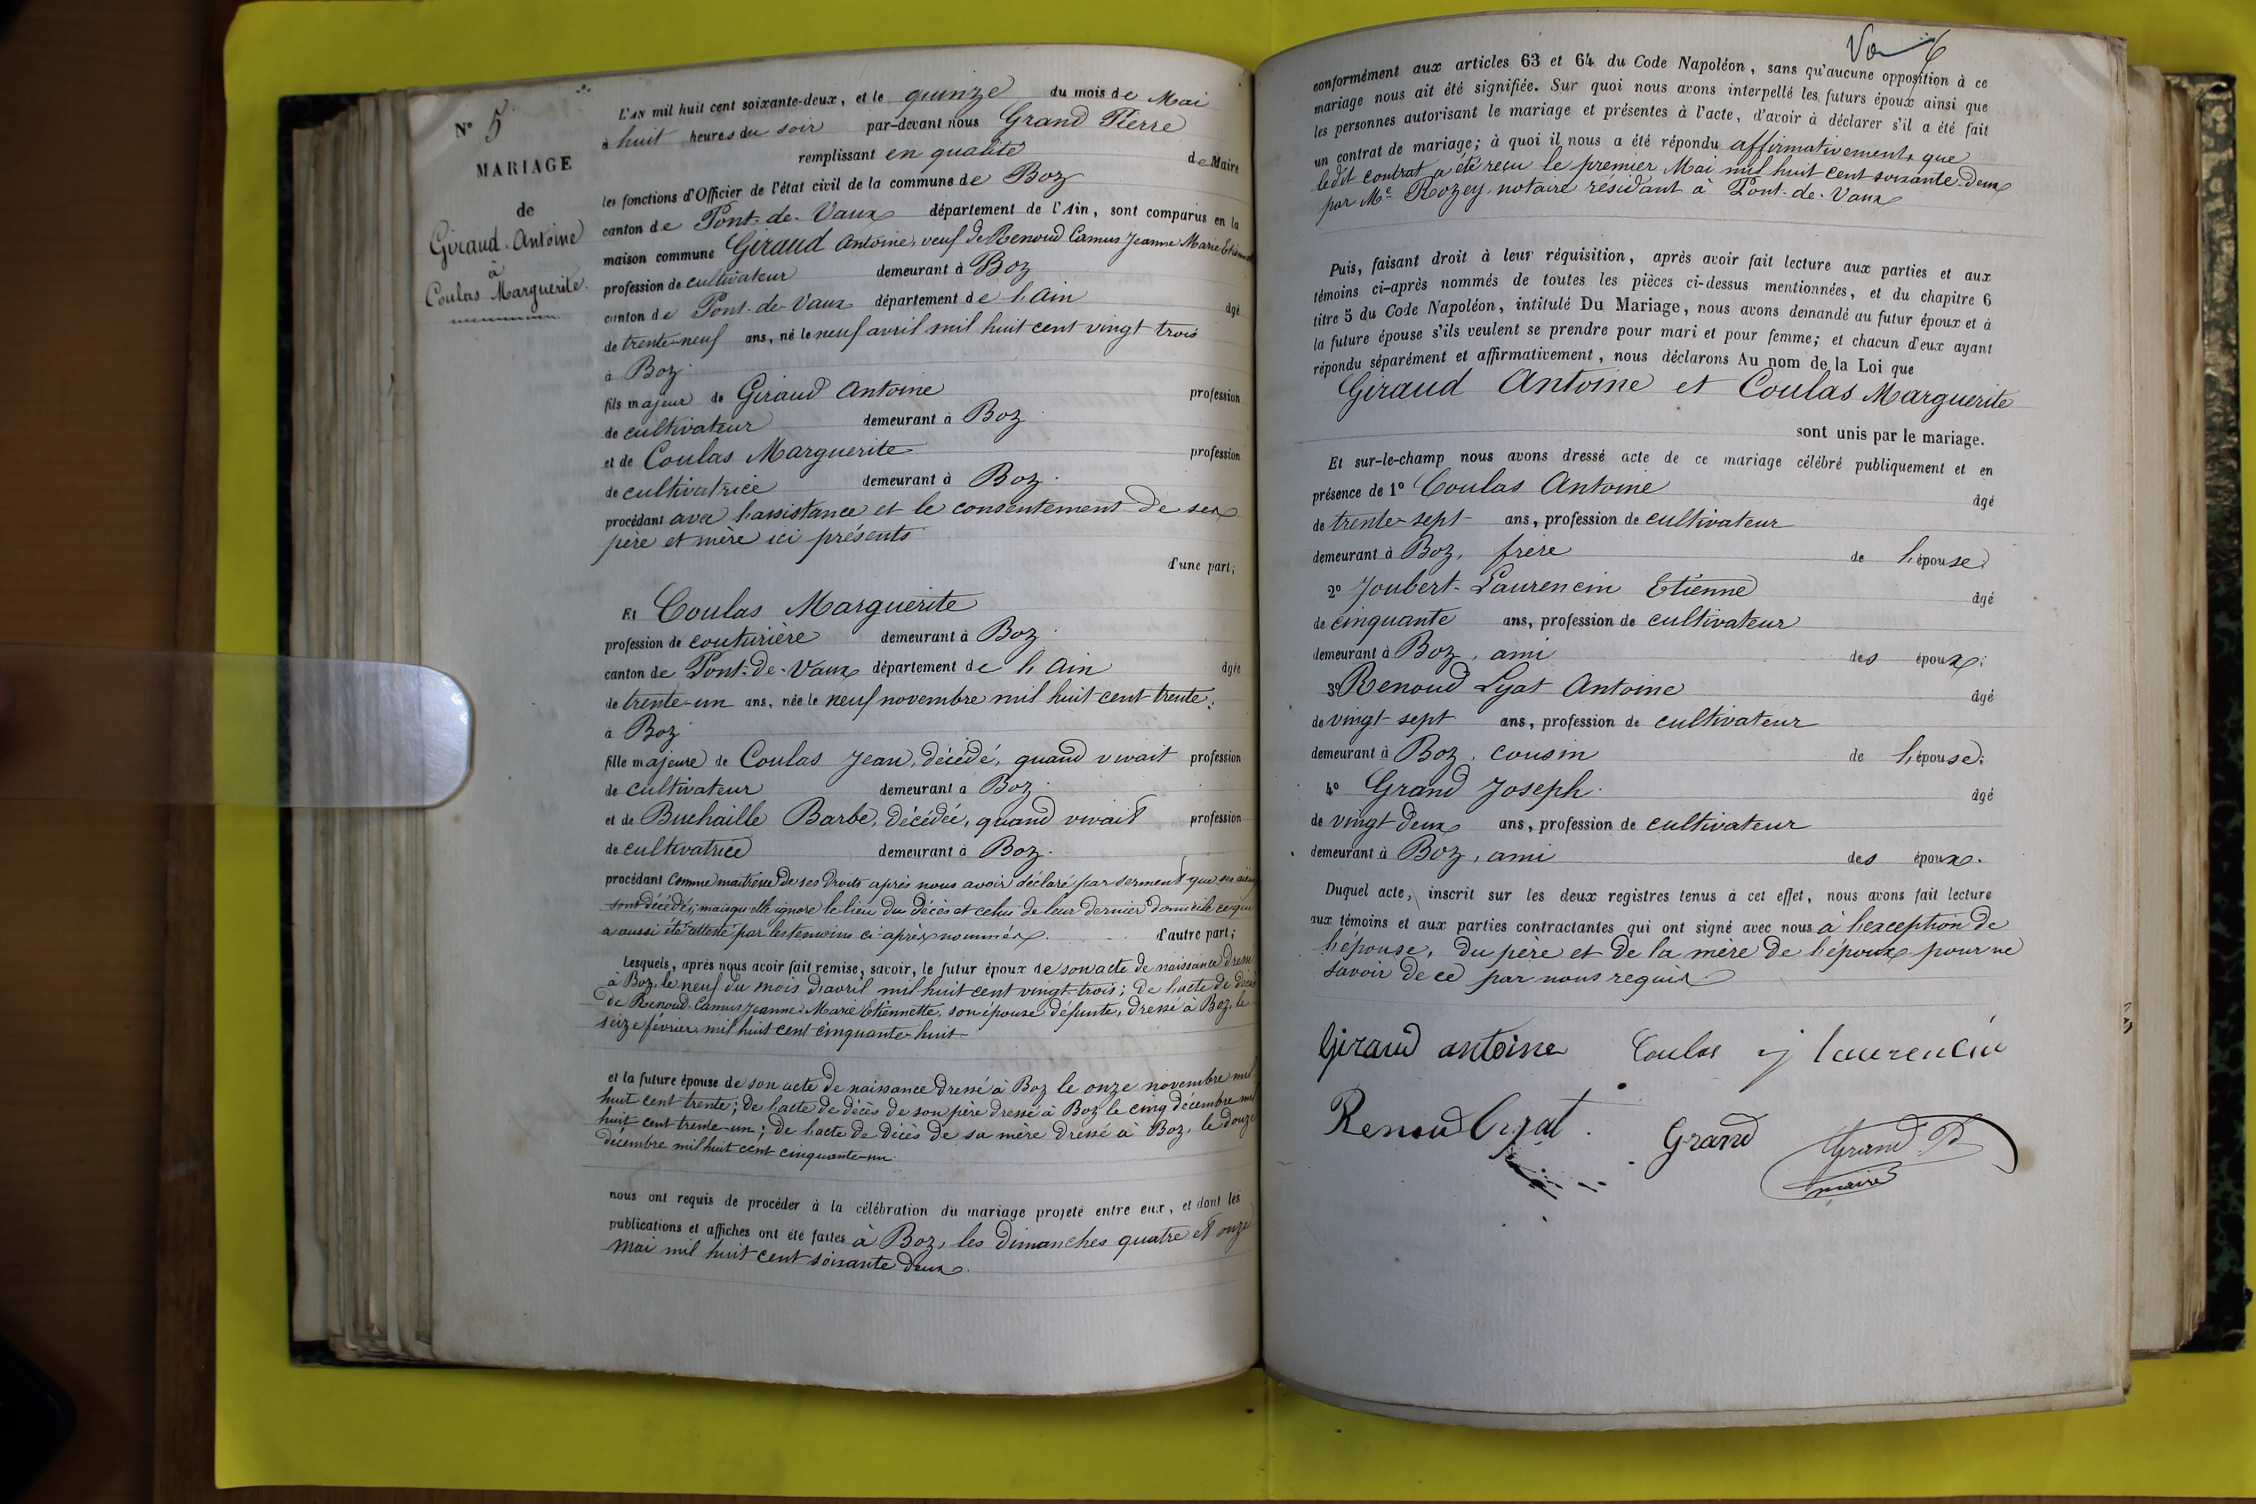 N° 5
MARIAGE
de
Giraud Antoine
à
Coulas Marguerite.
L'AN mil huit cent soixante-deux, et le quinze du mois de Mai
à huit heures du soir par-devant nous Grand Pierre
remplissant en qualité de Maire
les fonctions d'Officier de l'état civil de la commune de Boz
canton de Pont-de-Vaux département de l'Ain, sont comparus en la
maison commune Giraud Antoine, veuf de Renoud Camus Jeanne Marie Etiennette
profession de cultivateur demeurant à Boz
canton de Pont-de-Vaux département de l'Ain âgé
de trente-neuf ans, né le neuf avril mil huit cent vingt trois
à Boz
fils majeur de Giraud Antoine profession
de cultivateur demeurant à Boz
et de Coulas Marguerite profession
de cultivatrice demeurant à Boz.
procédant avec l'assistance et le consentement de ses
père et mère ici présents
d'une part;
Et Coulas Marguerite
profession de couturière demeurant à Boz
canton de Pont-de-Vaux département de l'Ain âgée
de trente-un ans, née le neuf novembre mil huit cent trente.
à Boz
fille majeure de Coulas Jean, décédé, quand vivait profession
de cultivateur demeurant à Boz
et de Buchaille Barbe, décédée, quand vivait profession
de cultivatrice demeurant à Boz.
procédant comme maitresse de ses droits après nous avoir déclaré par serment que ses aïeux
sont décédés, mais qu'elle ignore le lieu du décès et celui de leur dernier domicile ce qui
a aussi été attesté par les témoins ci-après nommés. d'autre part;
Lesquels, après nous avoir fait remise, savoir, le futur époux de son acte de naissance dressé
à Boz, le neuf du mois d'avril mil huit cent vingt-trois; de l'acte de décès
de Renoud-Camus Jeanne-Marie Etiennette, son épouse défunte, dressé à Boz, le
seize février mil huit cent cinquante-huit
et la future épouse de son acte de naissance dressé à Boz le onze novembre mil
huit cent trente; de l'acte de décès de son père dressé à Boz le cinq décembre mil
huit cent trente-un; de l'acte de décès de sa mère dressé à Boz, le douze
décembre mil huit cent cinquante-un
nous ont requis de procéder à la célébration du mariage projeté entre eux, et dont les
publications et affiches ont été faites à Boz, les dimanches quatre et onze
mai mil huit cent soixante deux.
conformément aux articles 63 et 64 du Code Napoléon, sans qu'aucune opposition à ce
mariage nous ait été signifiée. Sur quoi nous avons interpellé les futurs époux ainsi que
les personnes autorisant le mariage et présentes à l'acte, d'avoir à déclarer s'il a été fait
un contrat de mariage; à quoi il nous a été répondu affirmativement, que
ledit contrat a été reçu le premier Mai mil huit cent soixante-deux
par Me Rozey, notaire résidant à Pont-de-Vaux
Puis, faisant droit à leur réquisition, après avoir fait lecture aux parties et aux
témoins ci-après nommés de toutes les pièces ci-dessus mentionnées, et du chapitre 6
titre 5 du Code Napoléon, intitulé Du Mariage, nous avons demandé au futur époux et à
la future épouse s'ils veulent se prendre pour mari et pour femme; et chacun d'eux ayant
répondu séparément et affirmativement, nous déclarons Au nom de la Loi que
Giraud Antoine et Coulas Marguerite
sont unis par le mariage.
Et sur-le-champ nous avons dressé acte de ce mariage célébré publiquement et en
présence de 1° Coulas Antoine âgé
de trente-sept ans, profession de cultivateur
demeurant à Boz, frère de l'épouse.
2° Joubert-Laurencin Etienne âgé
de cinquante ans, profession de cultivateur
demeurant à Boz, ami des époux;
3° Renoud Lyat Antoine âgé
de vingt sept ans, profession de cultivateur
demeurant à Boz, cousin de l'épouse.
4° Grand Joseph. âgé
de vingt deux ans, profession de cultivateur
demeurant à Boz, ami des époux.
Duquel acte, inscrit sur les deux registres tenus à cet effet, nous avons fait lecture
aux témoins et aux parties contractantes qui ont signé avec nous à l'exception de
l'épouse, du père et de la mère de l'époux pour ne
savoir de ce par nous requis
Giraud antoine Coulas j laurencin
Renoud Lyat. Grand Grand P
maire